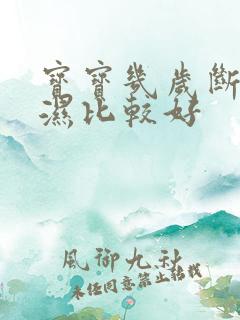 寶寶幾歲斷
濕比較好
風御九秋
未经同意禁止转载